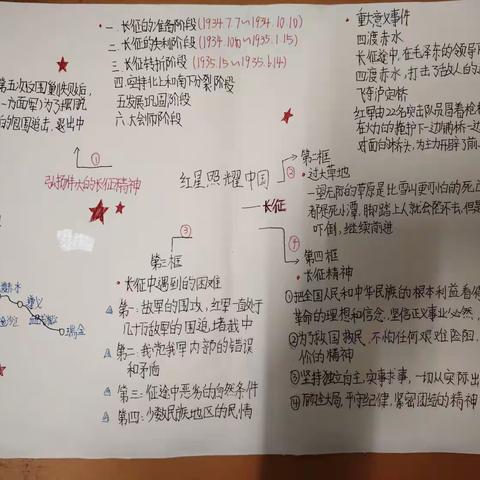 一 长征的准备阶段(1934.7.7~1934.10.10)
二 长征的失利阶段(1934.10.10~1935.1.15)
三 长征转折阶段(1935.1.15~1935.6.14)
四 坚持北上和南下分裂阶段
五 发展巩固阶段
六 大会师阶段
第五次反围剿失败后,
一方面军)为了摆脱
的包围追击,退出中
①
弘扬伟大的长征精神
红星照耀中国
——长征
②
③
④
重大意义事件
四渡赤水
长征途中,在毛泽东的领导
四渡赤水,打击了敌人的
飞夺泸定桥
红军由22名突击队员冒着枪
在火力的掩护下一边铺桥一边
对面的桥头,为主力开辟了前
第一框
过大草地
一望无际的草原是比雪山更可怕的死
都是死小潭,脚踏上人就会陷下去,但是
吓倒,继续前进
第三框
长征中遇到的困难
第一:敌军的围攻,红军一直处于
几十万敌军的围追堵截中
第二:我党我军内部的错误
和矛盾
第三:征途中恶劣的自然条件
第四:少数民族地区的民情
第四框
长征精神
①把全国人民和中华民族的根本利益看得
革命的理想和信念,坚信正义事业必然
②为了救国救民,不怕任何艰难险阻,
价的精神
③坚持独立自主,实事求是,一切从实际出
④顾全大局,严守纪律,紧密团结的精神
赤水
遵义
瑞金